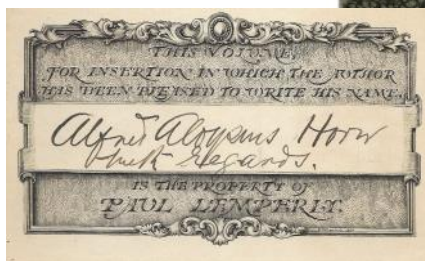 THIS VOLUME,
FOR INSERTION IN WHICH THE AUTHOR
HAS BEEN PLEASED TO WRITE HIS NAME,
Alfred Aloysius Horn
With regards.
IS THE PROPERTY OF
PAUL LEMPERLY.